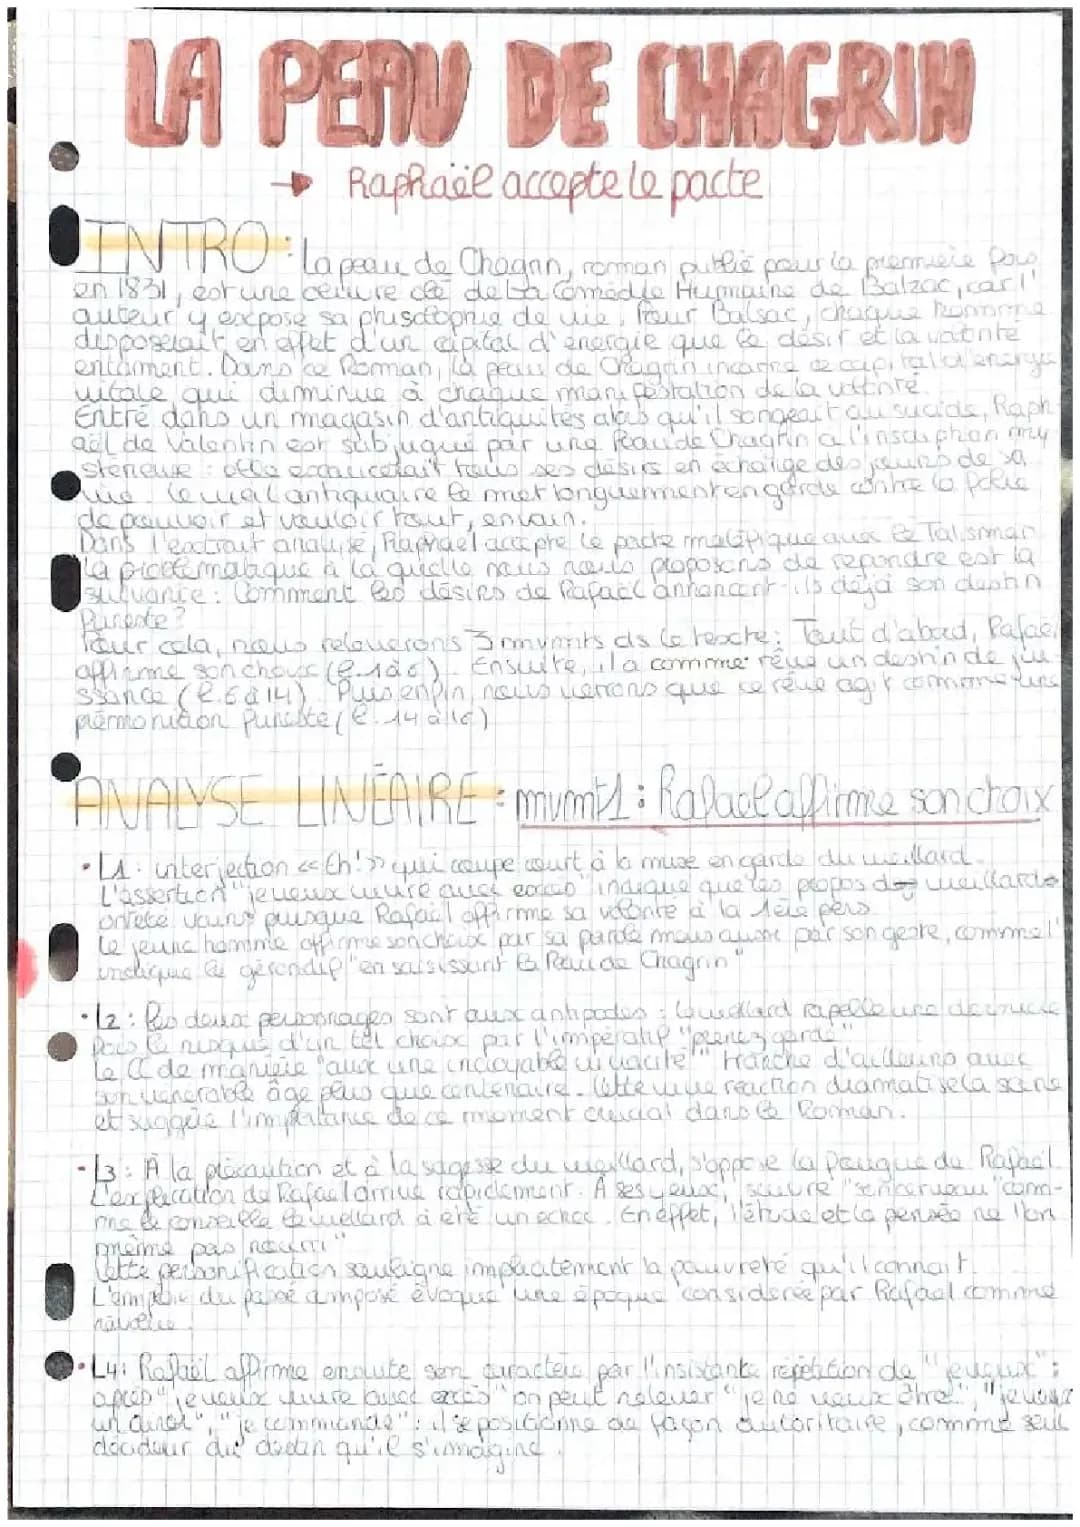 LA PEAU DE CHAGRIN
→ Raphaël accepte le pacte
INTRO : La peau de Chagrin, roman publié pour la première fois
en 1831, est une oeuvre clé de la Comédie Humaine de Balzac, car l'
auteur y expose sa phisolophie de vie. Pour Balsac, chaque homme
disposerait en effet d'un capital d'énergie que le désir et la volonté
entament. Dans ce Roman, la peau de Chagrin incarne ce capital d'énergie
vitale, qui diminue à chaque manifestation de la volonté.
Entré dans un magasin d'antiquités alors qu'il songeait au suicide, Raph
aël de Valentin est subjugué par une Peau de Chagrin à l'inscription my
stérieuse : elle exaucerait tous ses désirs en échange des jours de sa
vie. Le antiquaire le met longuement en garde contre la folie
de pouvoir et vouloir tout, en vain.
Dans l'extrait analysé, Raphaël accepte le pacte maléfique avec le Talisman
La problématique à laquelle nous nous proposons de repondre est la
suivante : Comment les désirs de Rafaël annoncent-ils déjà son destin
funeste ?
Pour cela, nous releverons 3 mvmts ds le texte : Tout d'abord, Rafaël
affirme son choix (l.1à6). Ensuite, il a comme rêve un destin de jui
ssance (l.6 à 14). Puis enfin, nous verrons que ce rêve agit comme une
prémonition funeste (l. 14 à 16)
ANALYSE LINÉAIRE : mvmt1 : Rafael affirme son choix
• L1 : interjection «Eh!» qui coupe court à la mise en garde du vieillard.
L'assertion "je veux vivre avec excès" indique que les propos du vieillard
ont été vains puisque Rafaël affirme sa volonté à la 1ère pers
Le jeune homme affirme son choix par sa parole mais aussi par son geste, comme l'
indique le gérondif "en saisissant la Peau de Chagrin"
• L2 : Les deux personnages sont aux antipodes : le vieillard rapelle une dernière
fois le risque d'un tel choix par l'impératif "prenez garde"
Le CC de manière "avec une incroyable vivacité" tranche d'ailleurs avec
son vénérable âge plus que centenaire. Cette vive réaction dramatise la scène
et suggère l'importance de ce moment crucial dans le Roman.
• L3 : À la précaution et à la sagesse du vieillard, s'oppose la fougue de Rafaël.
L'explication de Rafael arrive rapidement. A ses yeux, suivre "son cerveau" com-
me le conseille le vieillard à été un echec. En effet, l'étude et la pensée ne l'on
même pas nourri"
Cette personification souligne implicitement la pauvreté qu'il connait.
L'emploie du passé composé évoque une époque considérée par Rafael comme
révolue.
• L4: Rafaël affirme ensuite son caractère par l'insistante répétition de "je veux" :
après "je veux vivre avec excès" on peut relever "je ne veux être", "je veux
"je commande" : il se positionne de façon autoritaire, comme seul
décideur du destin qu'il s'imagine.